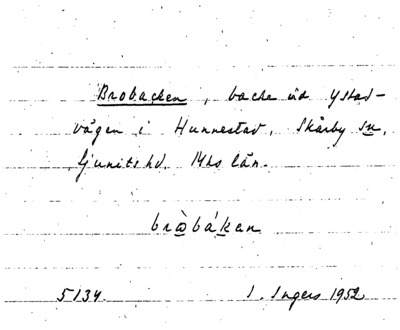 Brobacken, backe vid Ystad-
vägen i Hunnestad, Skårby sn,
Ljunits hd. Mhs län.
bròbákan
5134. I. Ingers 1952